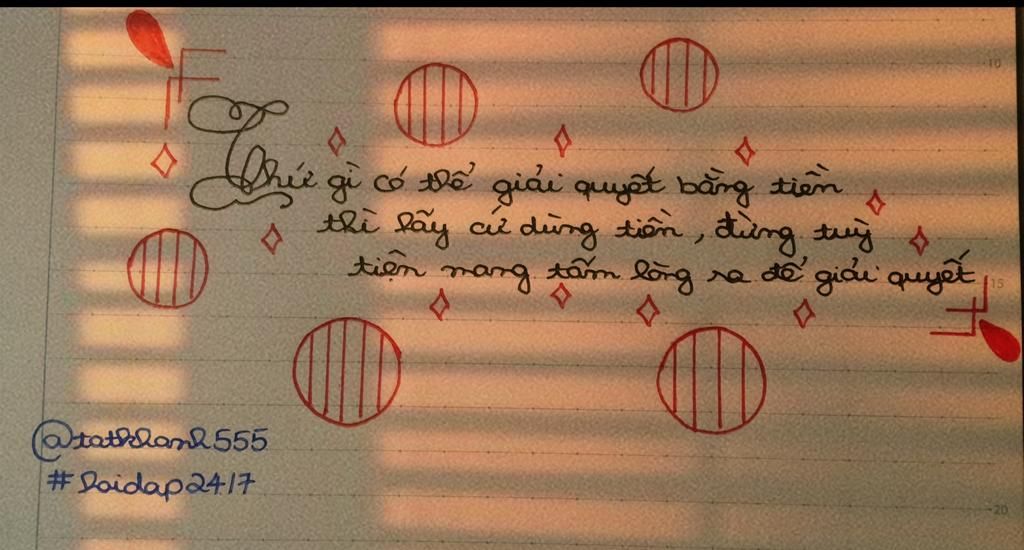 Thứ gì có thể giải quyết bằng tiền
thì hãy cứ dùng tiền, đừng tuỳ
tiện mang tấm lòng ra để giải quyết
@tatkhanh555
#hoidap247
10
15
20